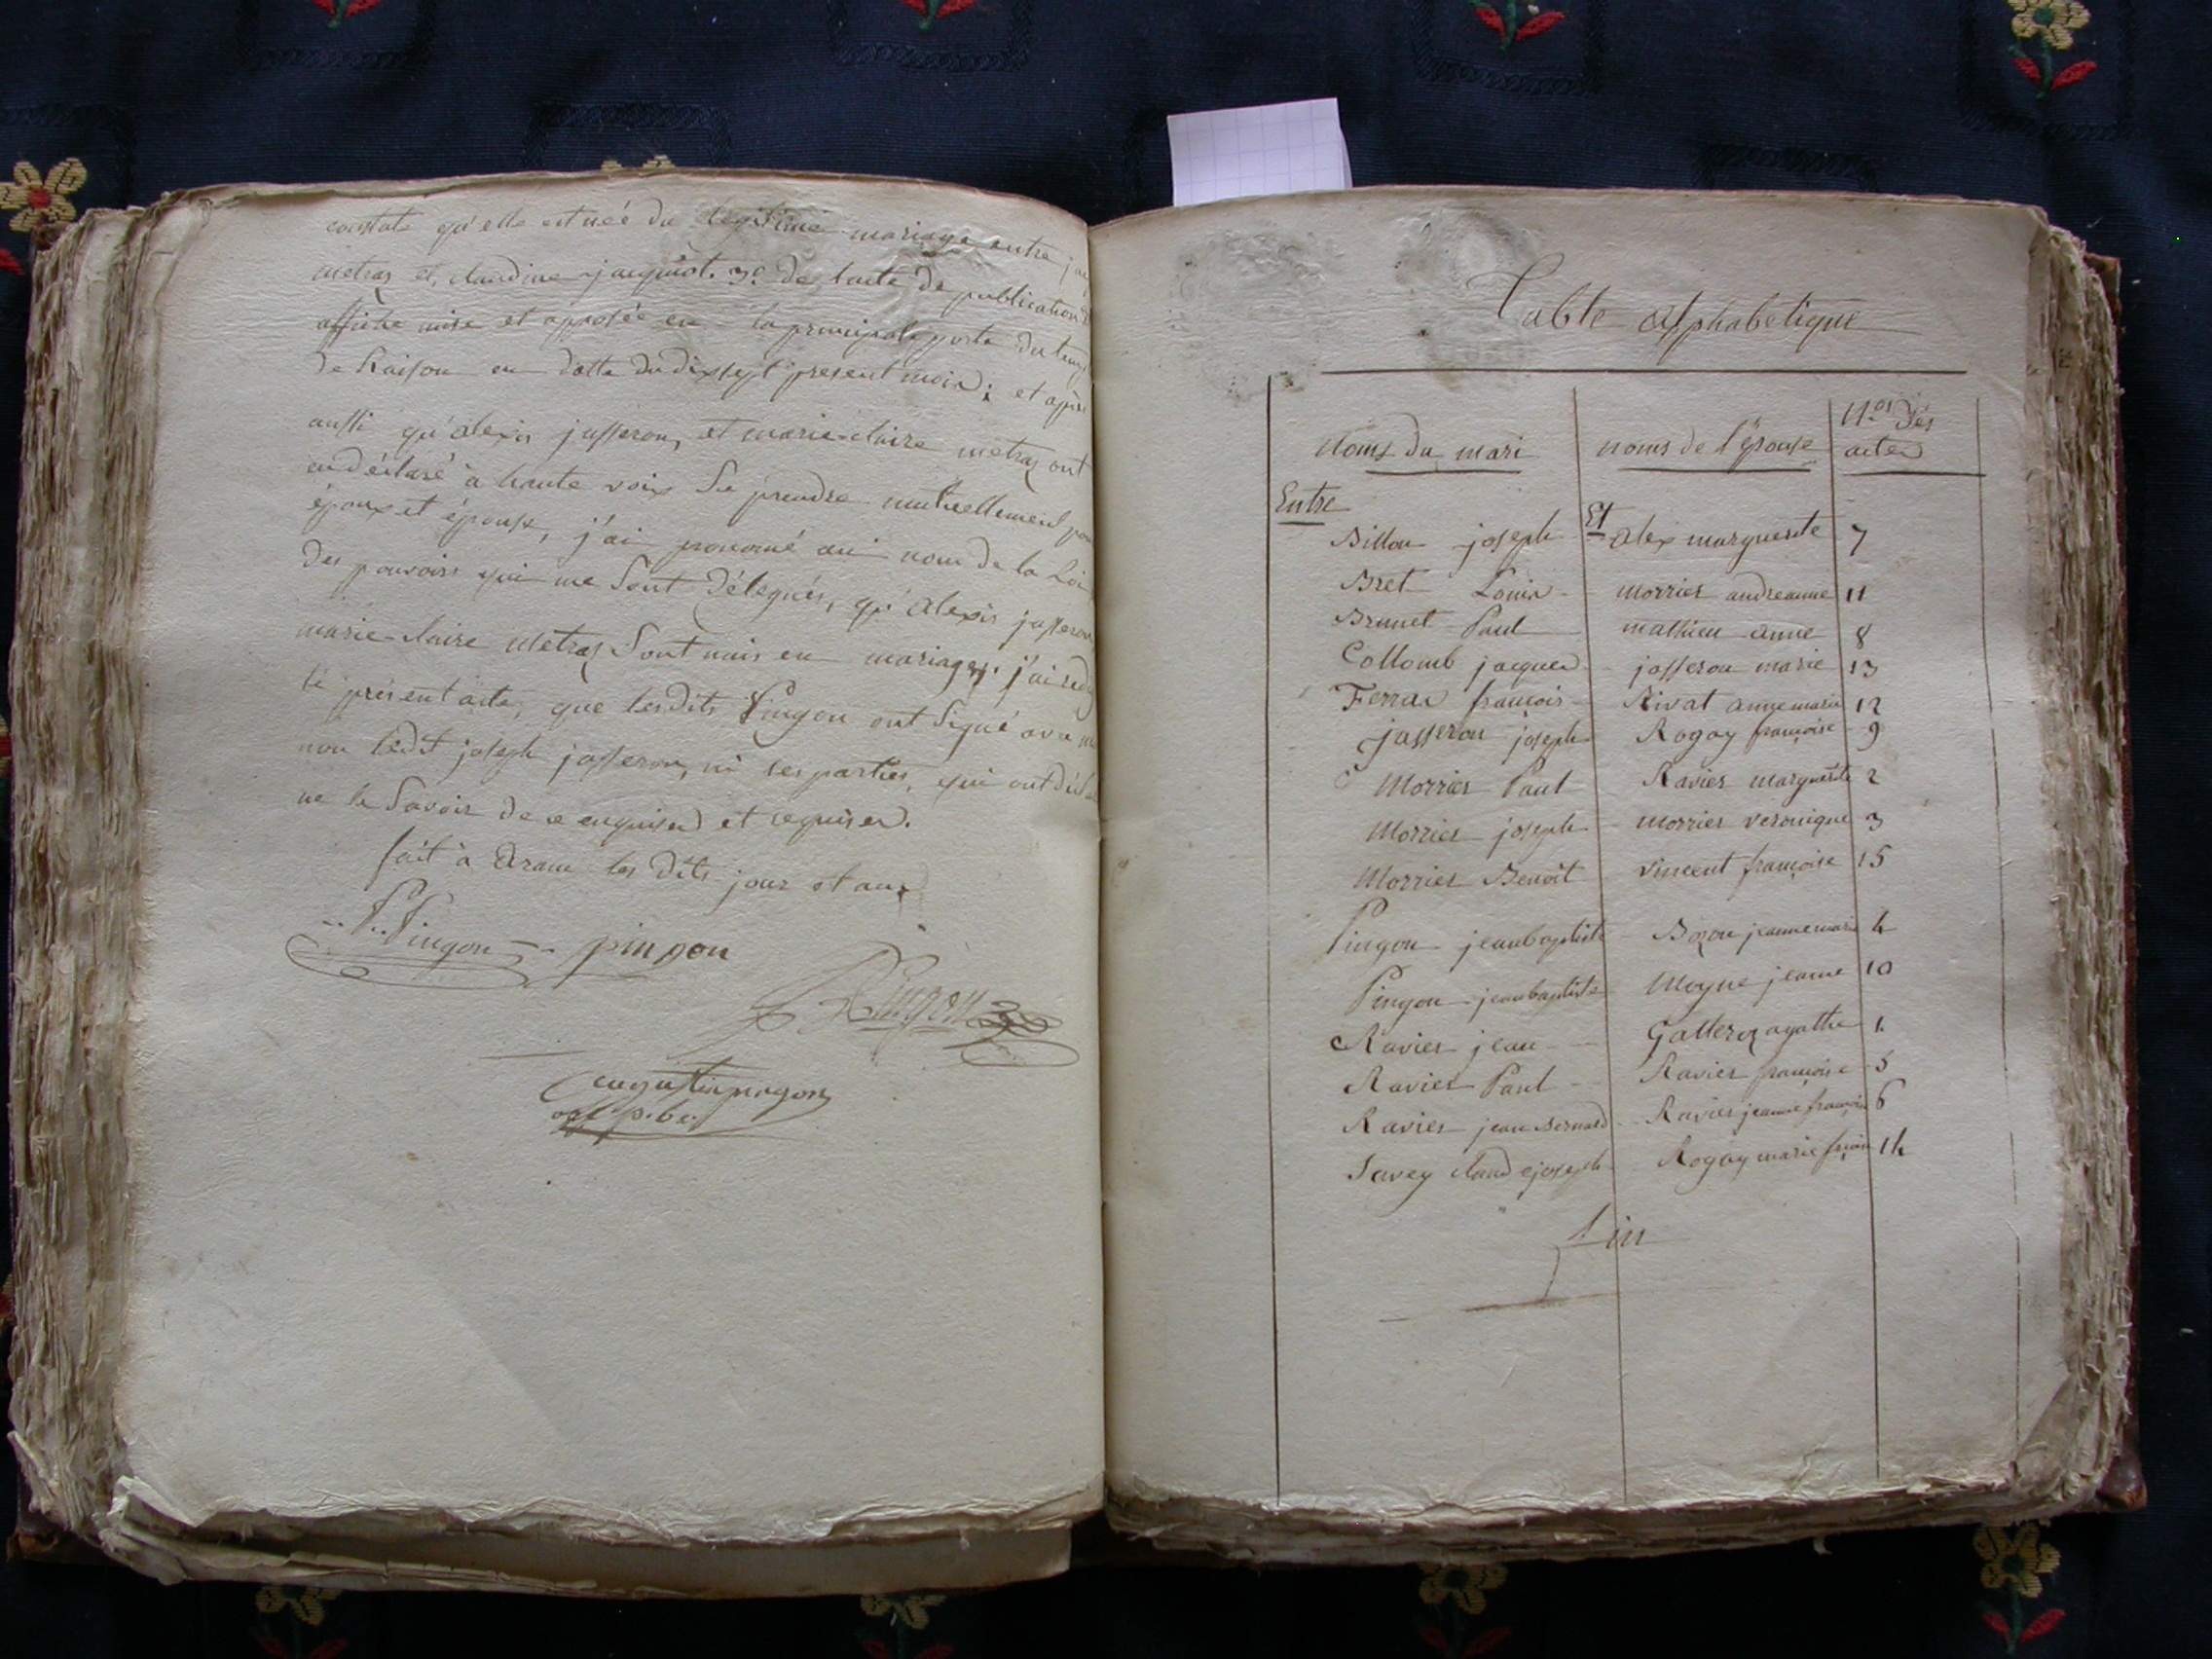 constate qu'elle est née du legitime mariage entre
metras et, claudine jacquiot. 3º de lacte de publication
affiche mise et apposée en la principale porte du
de Raison en datte du dixsept present mois; et après
aussi qu'alexis jasseron, et marie-claire metras ont
en déclaré à haute voix Se prendre mutuellement
époux et épouse, j'ai prononcé au nom de la Loi
Des pouvoirs qui me Sont Délégués, qu'alexis jasseron
marie-claire metras Sont unis en mariage,
le présent acte, que lesdits Pingon ont Signé avec
non ledit joseph jasseron, ni les parties, qui ont
ne le Savoir de ce enquises et requises.
fait à Aranc les Dits jour et an
P. Pingon pingon
Pingon
augustin pingon
Table alphabetique
Noms du mari
noms de l'épouse
Nos Des actes
Entre Et
Billon joseph alex marguerite 7
Bret Louis morrier andreanne 11
Brunet Paul mathieu anne 8
Collomb jacques jasseron marie 13
Ferrar francois Rivat anne marie 12
jasseron joseph Rogay françoise 9
Morrier Paul Ravier marguerite 2
Morrier joseph morrier veronique 3
Morrier Benoit vincent françoise 15
Pingon jeanbaptiste Bozon jeannemarie 4
Pingon jeanbaptiste Moyne jeanne 10
Ravier jean Galterez agathe 1.
Ravier Paul Ravier françoise 5
Ravier jean Bernard Ravier jeanne françoise 6
Savey claudejoseph Rogay marie 14
fin